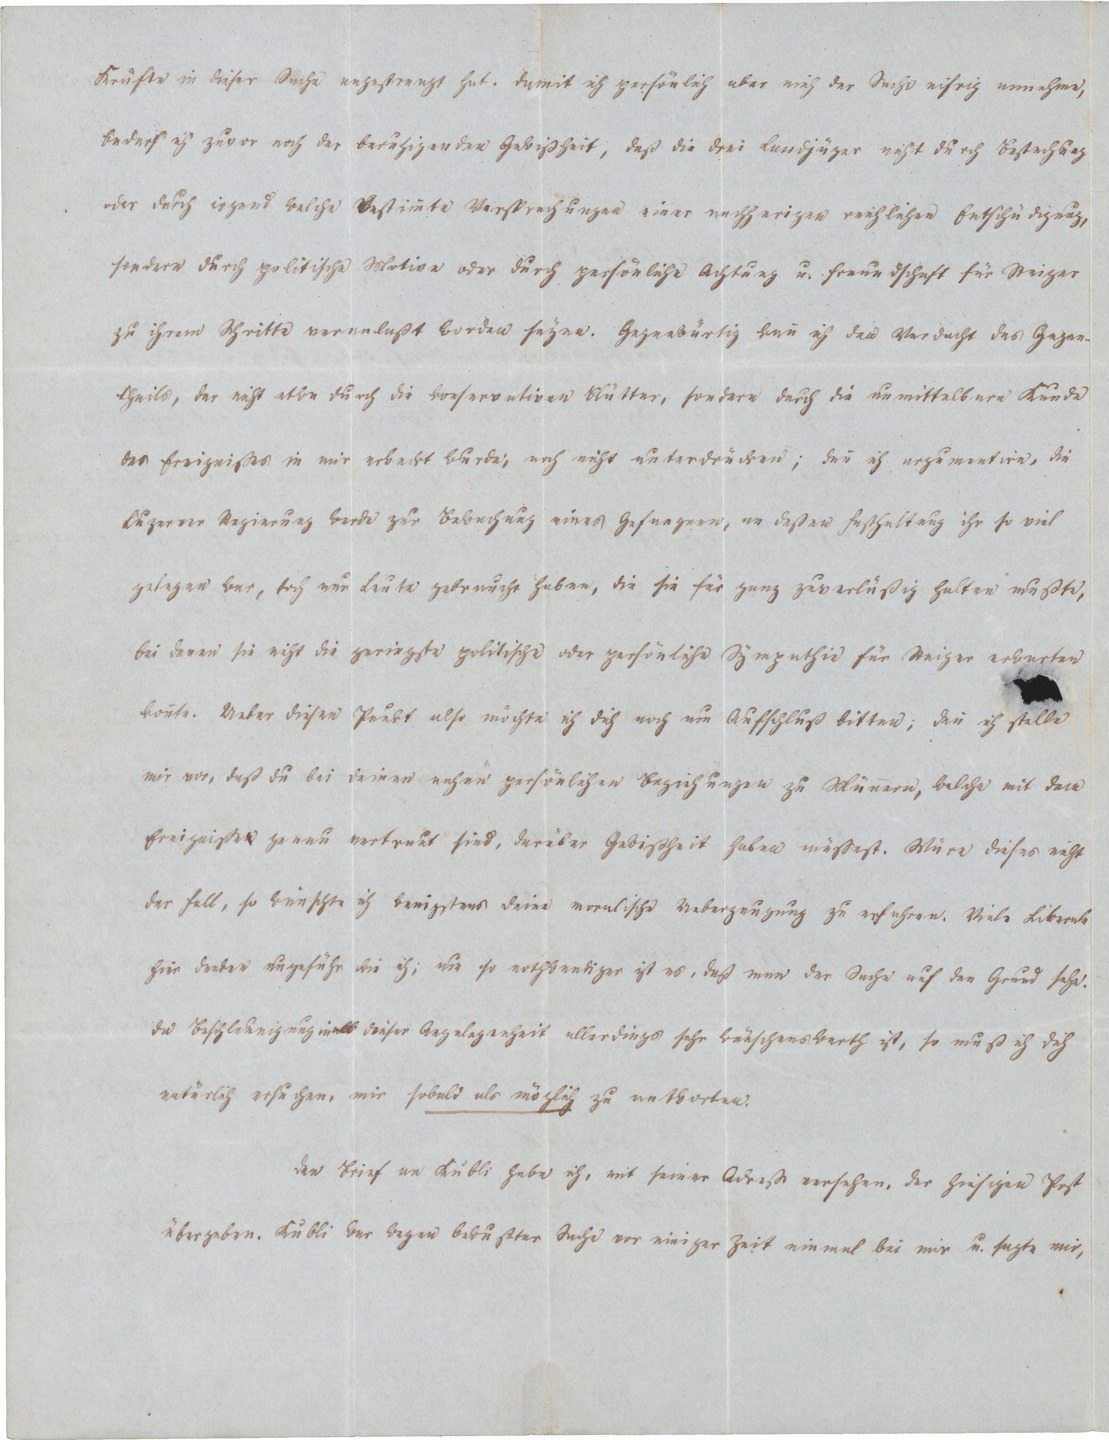 Kräfte in dieser Sache angestrengt hat. Damit ich persönlich aber mich der Sache eifrig annehme,
bedarf ich zuvor noch der beruhigenden Gewißheit, daß die drei Landjäger nicht durch Bestechung
oder durch irgend welche bestim̅te Versprechungen einer nachherigen reichlichen Entschädigung,
sondern durch politische Motive oder durch persönliche Achtung u. Freundschaft für Steiger
zu ihrem Schritte veranlaßt worden seyen. Gegenwärtig kan̅ ich den Verdacht des Gegen-
theils, der nicht etwa durch die konservativen Blätter, sondern durch die unmittelbare Kunde
des Ereignißes in mir erweckt wurde, noch nicht unterdrücken; den̅ ich argumentire, die
Luzerner Regierung werde zur Bewachung eines Gefangenen, an deßen Festhaltung ihr so viel
gelegen war, doch nur Leute gebraucht haben, die sie für ganz zuverläßig halten mußte,
bei denen sie nicht die geringste politische oder persönliche Sympathie für Steiger erwarten
kon̅te. Ueber diesen Punkt also möchte ich dich noch um Aufschluß bitten; den̅ ich stelle
mir vor, daß du bei deinen nahen persönlichen Beziehungen zu Män̅ern, welche mit dem
Ereigniße genau vertraut sind, darüber Gewißheit haben müßest. Wäre dieses nicht
der Fall, so wünschte ich wenigstens deine moralische Ueberzeugung zu erfahren. Viele Liberale
hier denken ungefähr wie ich; um so nothwendiger ist es, daß man der Sache auf den Grund sehe.
Da Beschleunigung in dieser Angelegenheit allerdings sehr wünschenswerth ist, so muß ich dich
natürlich ersuchen, mir sobald als möglich zu antworten.
Den Brief an Kubli habe ich, mit seiner Adreße versehen, der hiesigen Post
übergeben. Kubli war wegen bewußter Sache vor einiger Zeit einmal bei mir u. sagte mir,